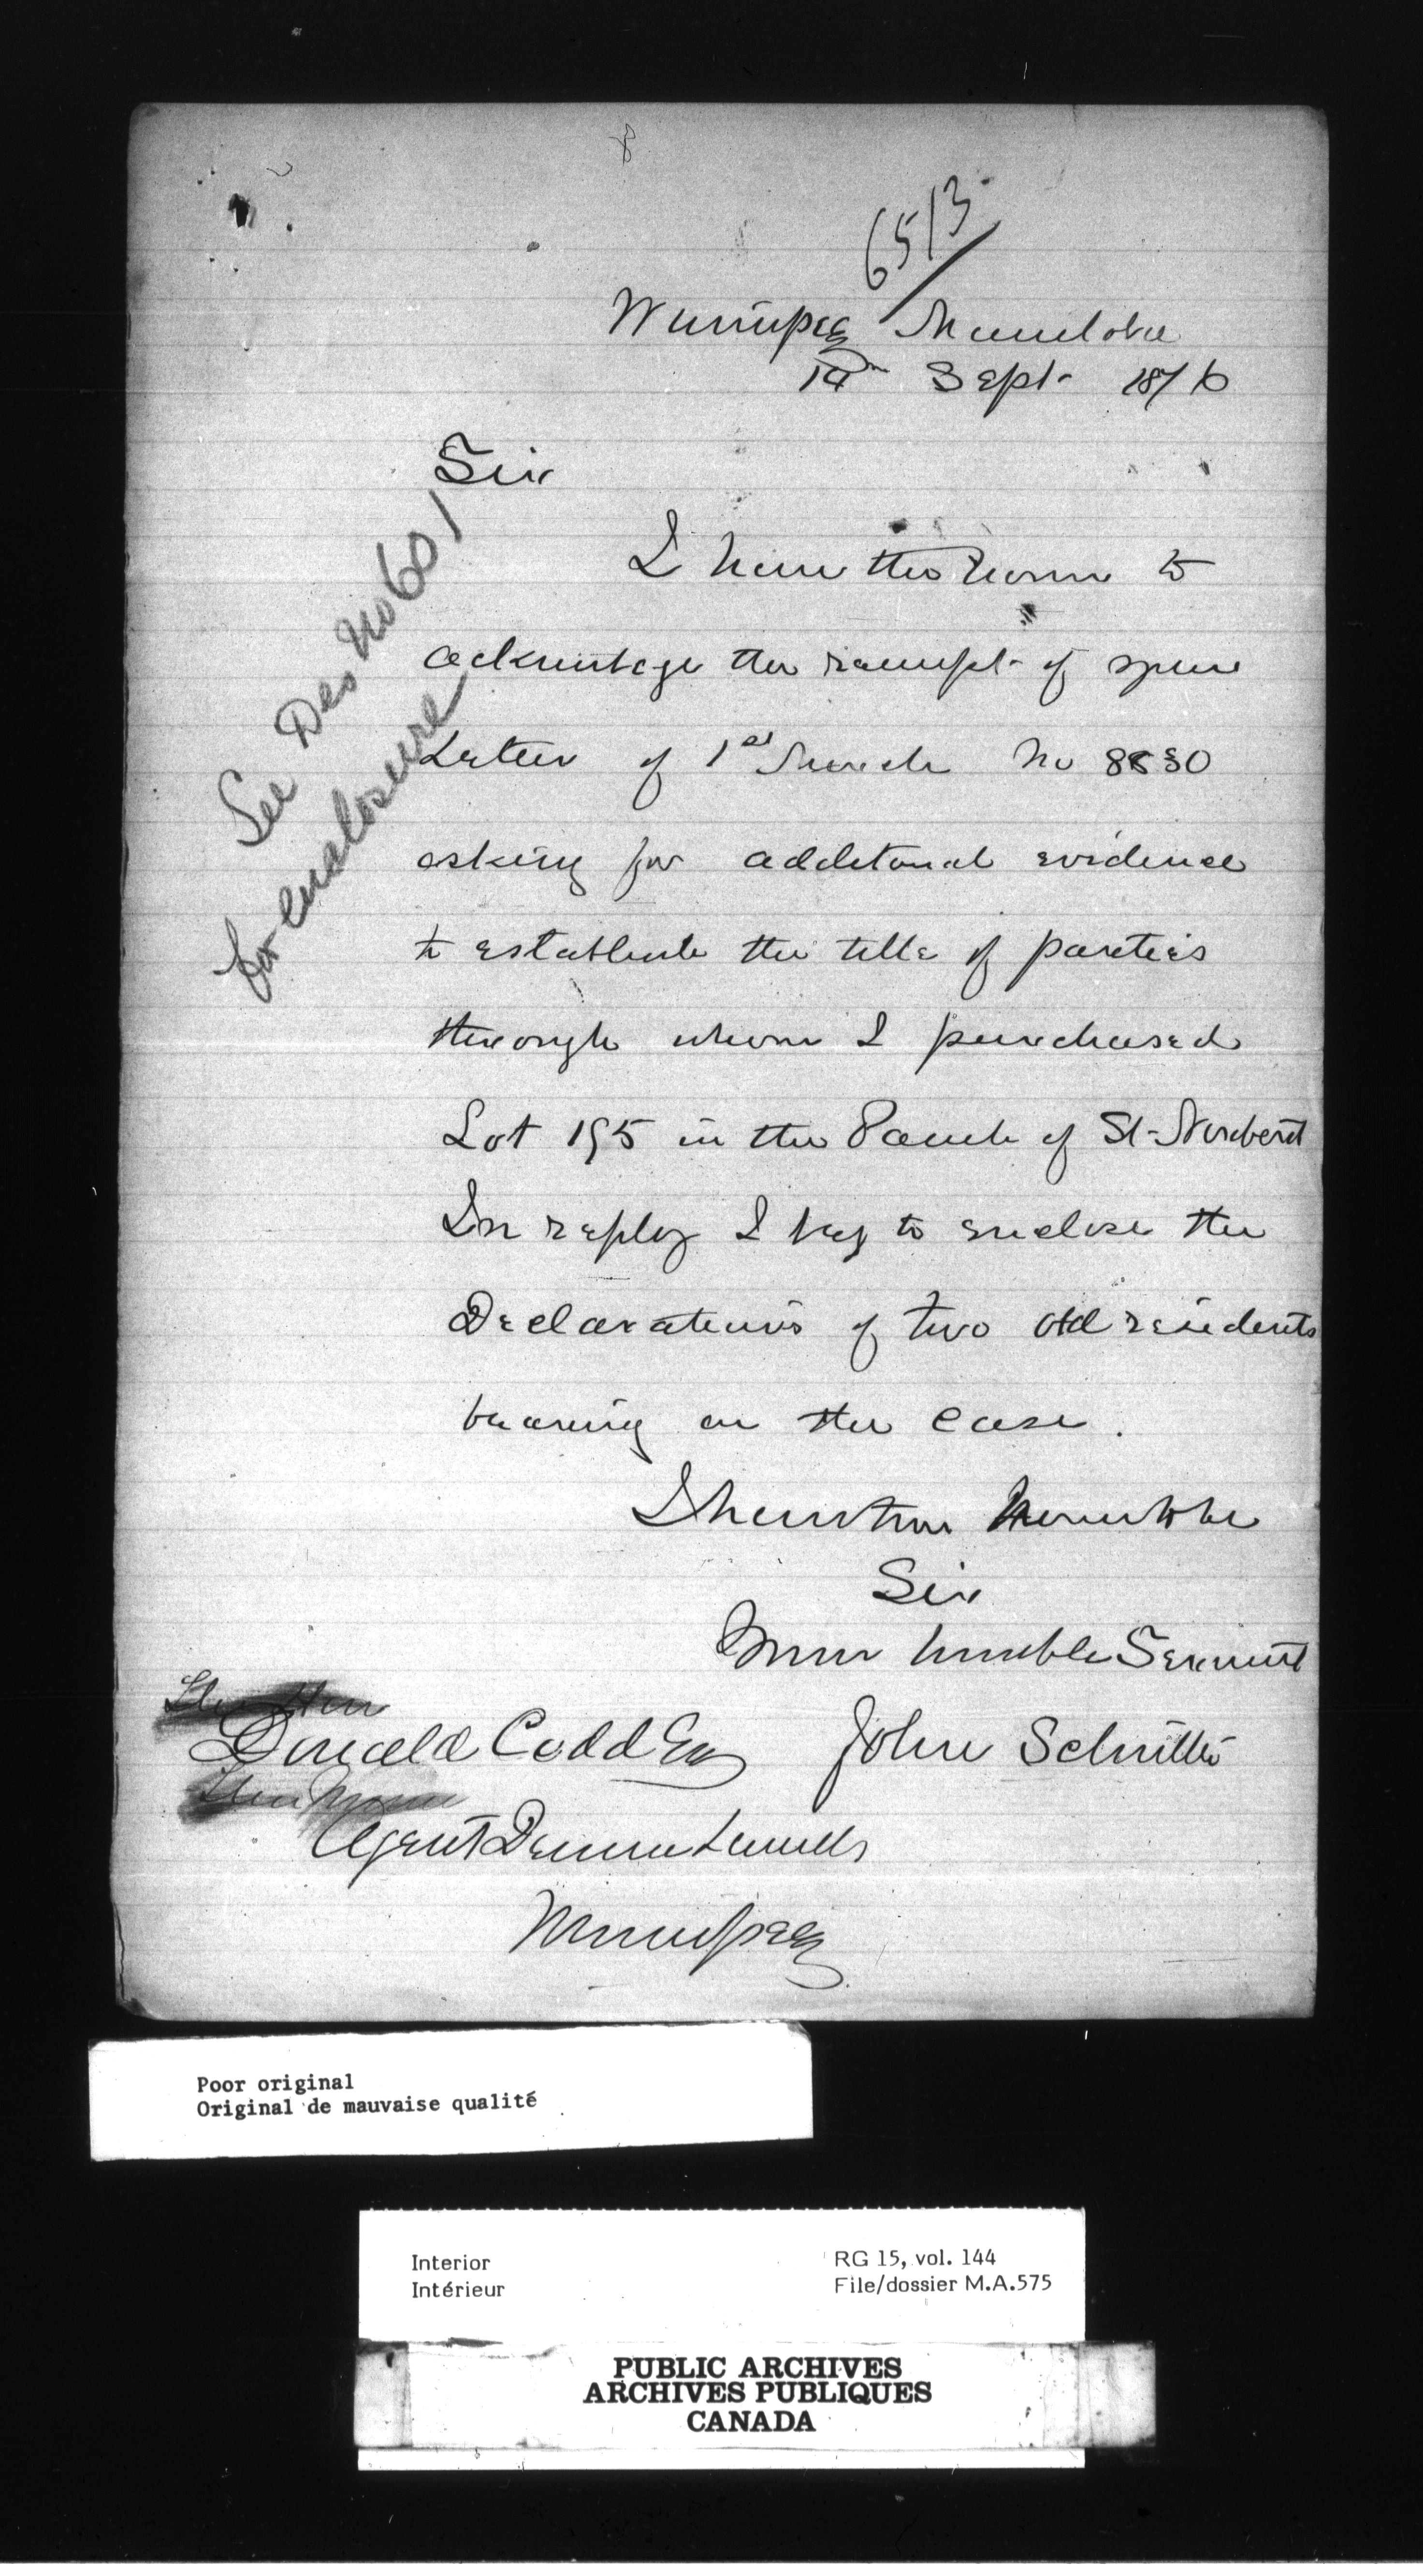 8
6513
Winnipeg Manitoba
14th Sept- 1876
Sir
See Des No 601
for enclosure
I have the honor to
acknowledge the receipt of your
Letter of 1st March No 8830
asking for additional evidence
to establish the title of parties
through whom I purchased
Lot 195 in the Parish of St-Norbert
In reply I beg to enclose the
Declarations of two old residents
bearing on the case.
I have the honor to be
Sir
Your humble Servant
Donald Codd Esq John Schultz
Agent Domn Lands
Winnipeg
Poor original
Original de mauvaise qualité
Interior
Intérieur
RG 15, vol. 144
File/dossier M.A.575
PUBLIC ARCHIVES
ARCHIVES PUBLIQUES
CANADA